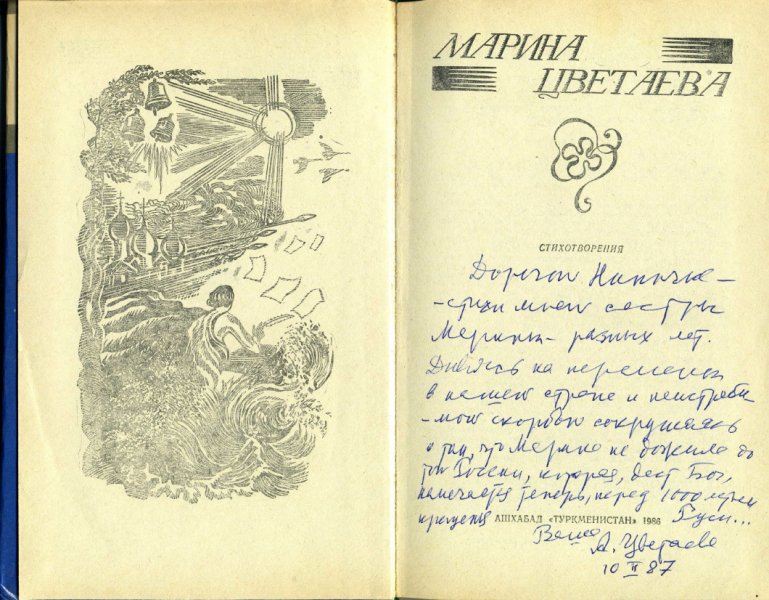 МАРИНА
ЦВЕТАЕВА
СТИХОТВОРЕНИЯ
Дорогой Ниночке —
- стихи моей сестры
Марины - разных лет.
Дивясь на перемены
в нашей стране и неистреби
- мой скорбью сокрушаясь
о том, что Марина не дожила до
той Весны, которая, даст Бог,
намечается теперь, перед 1000 летием
крещения Руси...
АШХАБАД «ТУРКМЕНИСТАН» 1986
Ваша
А. Цветаева
10 II 87